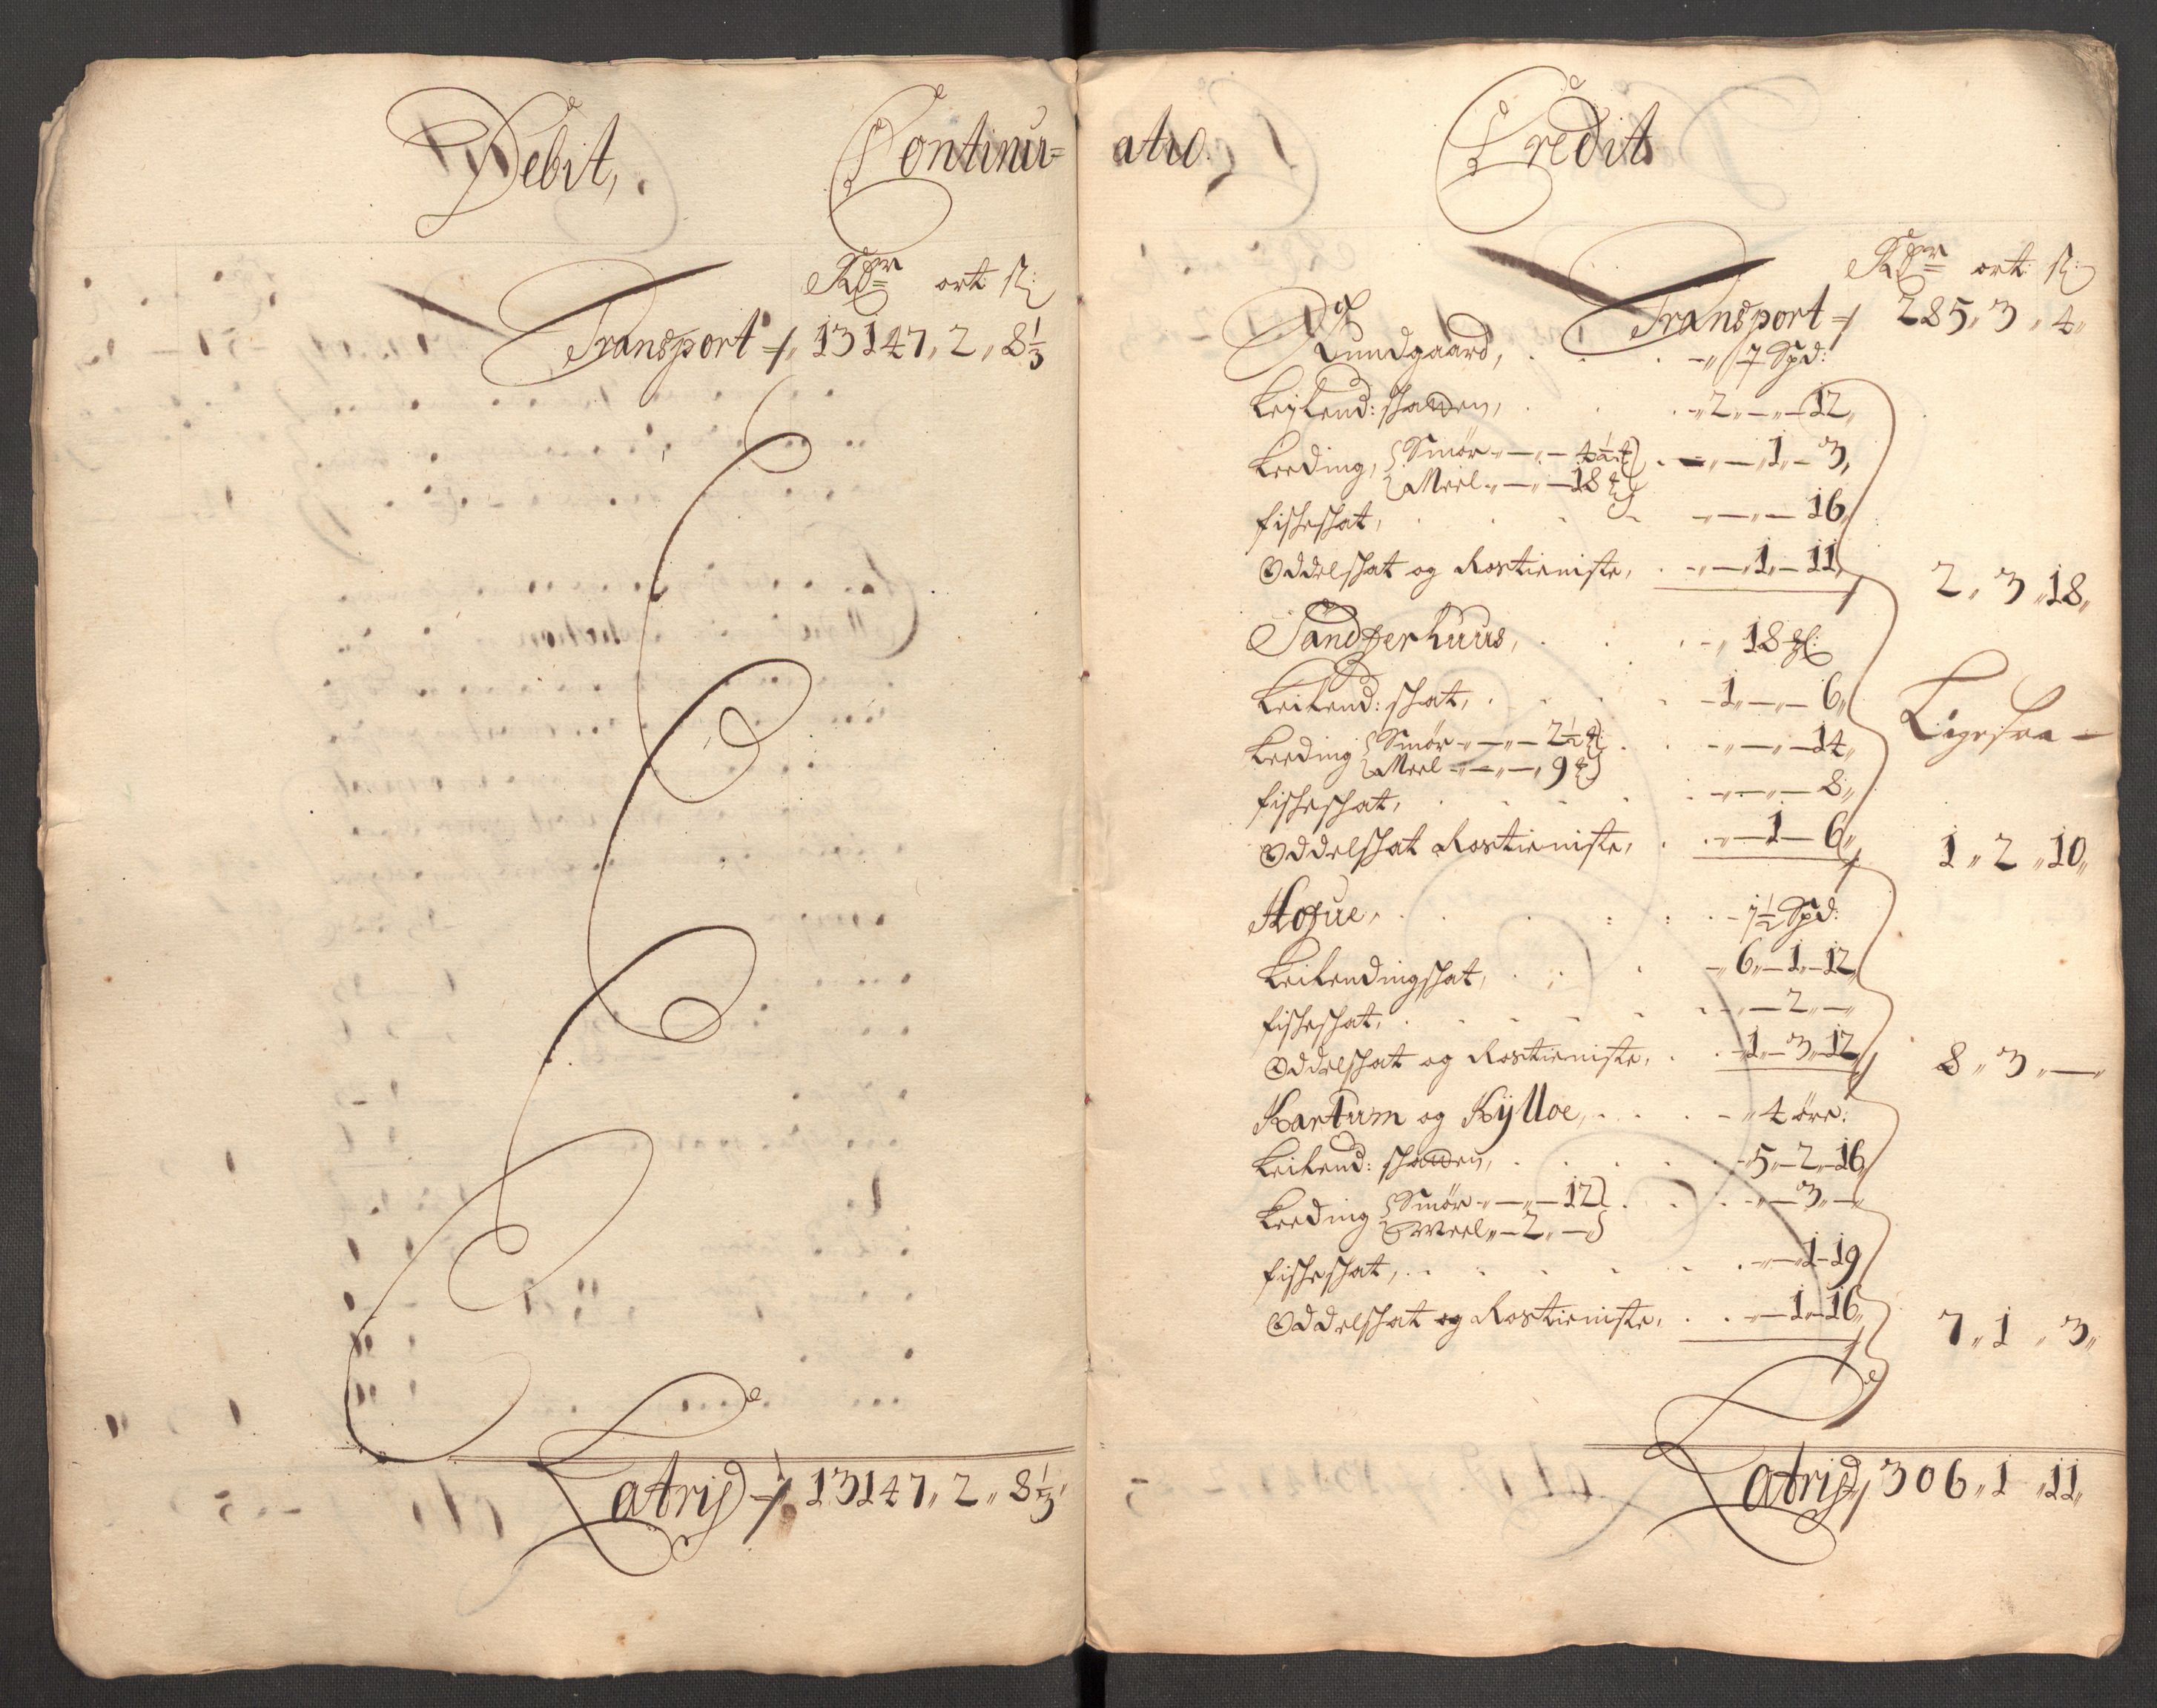 Debit, Continu-
Rdr ort ß
Transport 13147 „ 2 „ 8 1/3
Latris 13147 „ 2 „ 8 1/3
atio. Credit
Rdr ort ß
Transport 285 „ 3 „ 4 „
Rundgaard, 7 Spd:
Leylend: skatten, 2 „ — „ 12 „
Leeding, Smør — 4 1/2
Meel — 18 — 1 „ 3 „
fischeskat, — 16 „
Oddelskat og Rostieniste, — 1 „ 11 „
2 „ 3 „ 18 „
Sandperhuus, 18
Leilend: skat, 1 „ — 6 „
Leeding Smør — 2 1/2
Meel — 9 — 14 „
fischeskat, — 8 „
Oddelskat Rostieniste, — 1 — 6 „
Ligesaa —
1 „ 2 „ 10 „
Hofue, 7 1/2 Spd:
Leilendingskat, 6 „ 1 „ 12 „
fischeskat, — 2 „ —
Oddelskat og Rostieniste, 1 „ 3 „ 12 „
8 „ 3 „ —
Kartum og Kylloe, 4 øre:
Leilend: skatten, 5 „ 2 „ 16 „
Leeding Smør — 12
Meel „ 2 „ — — 3 „ —
fischeskat, — 1 „ 19
Oddelskat og Rostieniste, — 1 „ 16 „
7 „ 1 „ 3 „
Latris 306 „ 1 „ 11 „